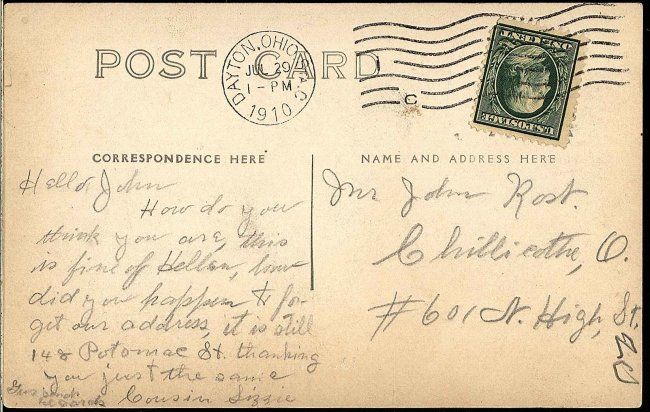 POST CARD
DAYTON, OHIO
JUL 29
1-PM
1910
C
U.S. POSTAGE
CORRESPONDENCE HERE
NAME AND ADDRESS HERE
Hello John
How do you
think you are, this
is fine of Hellen, how
did you happen to for-
get our address, it is still
148 Potomac St. thanking
you just the same
Cousin Lizzie
Mr John Rost.
Chillicothe, O.
#601 N. High, St.